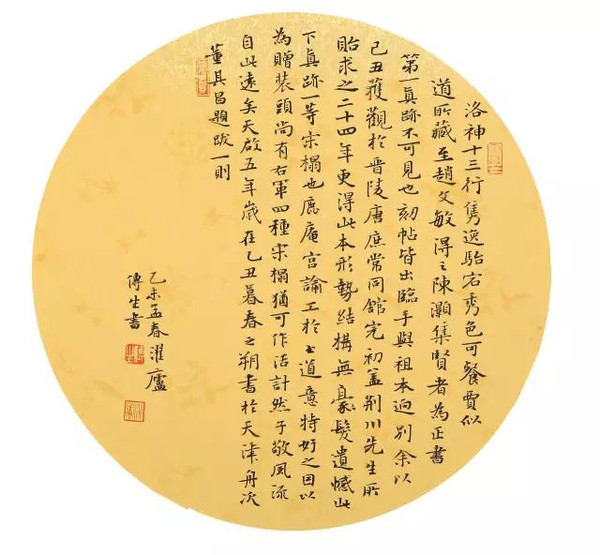 洛神十三行雋逸駘宕秀色可餐賈似
道所藏至趙文敏得之陳灝集賢者為正書
第一真跡不可見也刻帖皆出臨手與祖本迥別余以
己丑獲觀於晉陵唐庶常同館完初蓋荊川先生所
貽求之二十四年更得此本形勢結構無毫髮遺憾此
下真跡一等宋榻也鹿庵宮諭工於書道意特好之因以
為贈裝頭尚有右軍四種宋榻猶可作活計然子敬風流
自此遠矣天啟五年歲在乙丑暮春之朔書於天津舟次
董其昌題跋一則
乙未孟春濯廬
傳生書